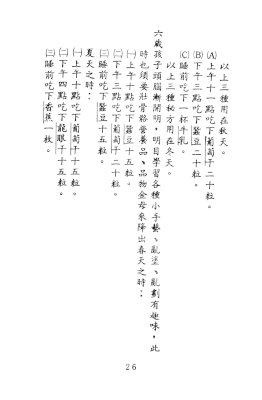 以上三種用在秋天。
(A)上午十一點吃下葡萄干二十粒。
(B)下午三點吃下蠶豆二十粒。
(C)睡前吃下一杯牛乳。
以上三種秘方用在冬天。
六歲孩子頭腦漸開明，明目學習各種小手藝、亂塗、亂劃有趣味，此
時也須要壯骨骼營養品、品物金母來降出春天之時：
(一)上午十點吃下葡萄干十粒。
(二)下午三點吃下葡萄干二十粒。
(三)睡前吃下蠶豆十五粒。
夏天之時：
(一)上午十點吃下葡萄干十五粒。
(二)下午四點吃下龍眼干十五粒。
(三)睡前吃下香蕉一枚。
26